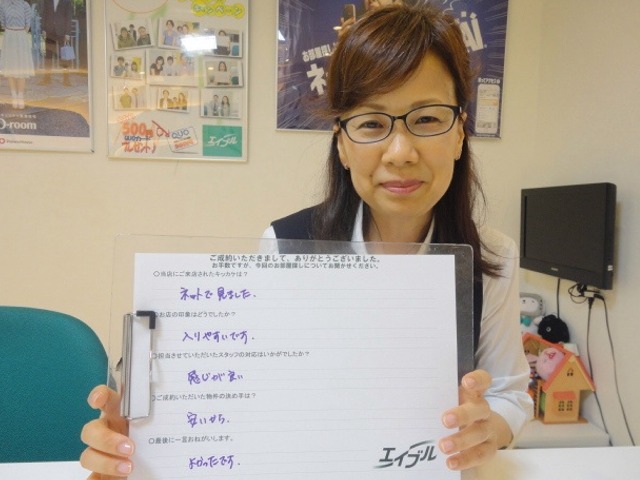 キャンペーン
500円
QUOカード
プレゼント!
エイブル
o-room
お部屋探し
ご成約いただきまして、ありがとうございました。
お手数ですが、今回のお部屋探しについてお聞かせください。
○当店にご来店されたキッカケは?
ネットで見ました.
○お店の印象はどうでしたか?
入りやすいです.
○担当させていただいたスタッフの対応はいかがでしたか?
感じが良い
○ご成約いただいた物件の決め手は?
安いから.
○最後に一言おねがいします。
よかったです.
エイブル